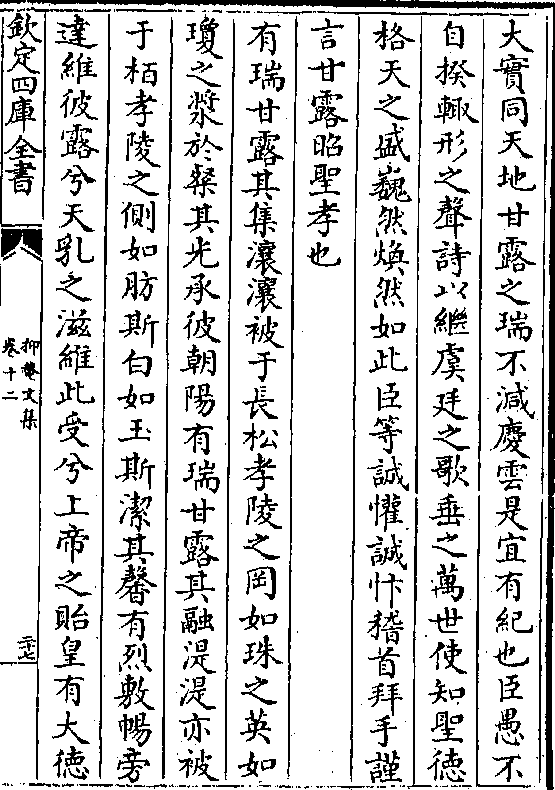 大實同天地甘露之瑞不減慶雲是宜有紀也臣愚不
自揆輙形之聲詩以繼虞廷之歌垂之萬世使知聖德
格天之盛巍然煥然如此臣等誠懽誠忭稽首拜手謹
言甘露昭聖孝也
有瑞甘露其集瀼瀼被于長松孝陵之岡如珠之英如
瓊之漿於粲其光承彼朝陽有瑞甘露其融湜湜亦被
于栢孝陵之側如肪斯白如玉斯潔其馨有烈敷暢旁
達維彼露兮天乳之滋維此受兮上帝之貽皇有大德
欽定四庫全書
抑菴文集
卷十二
三十七